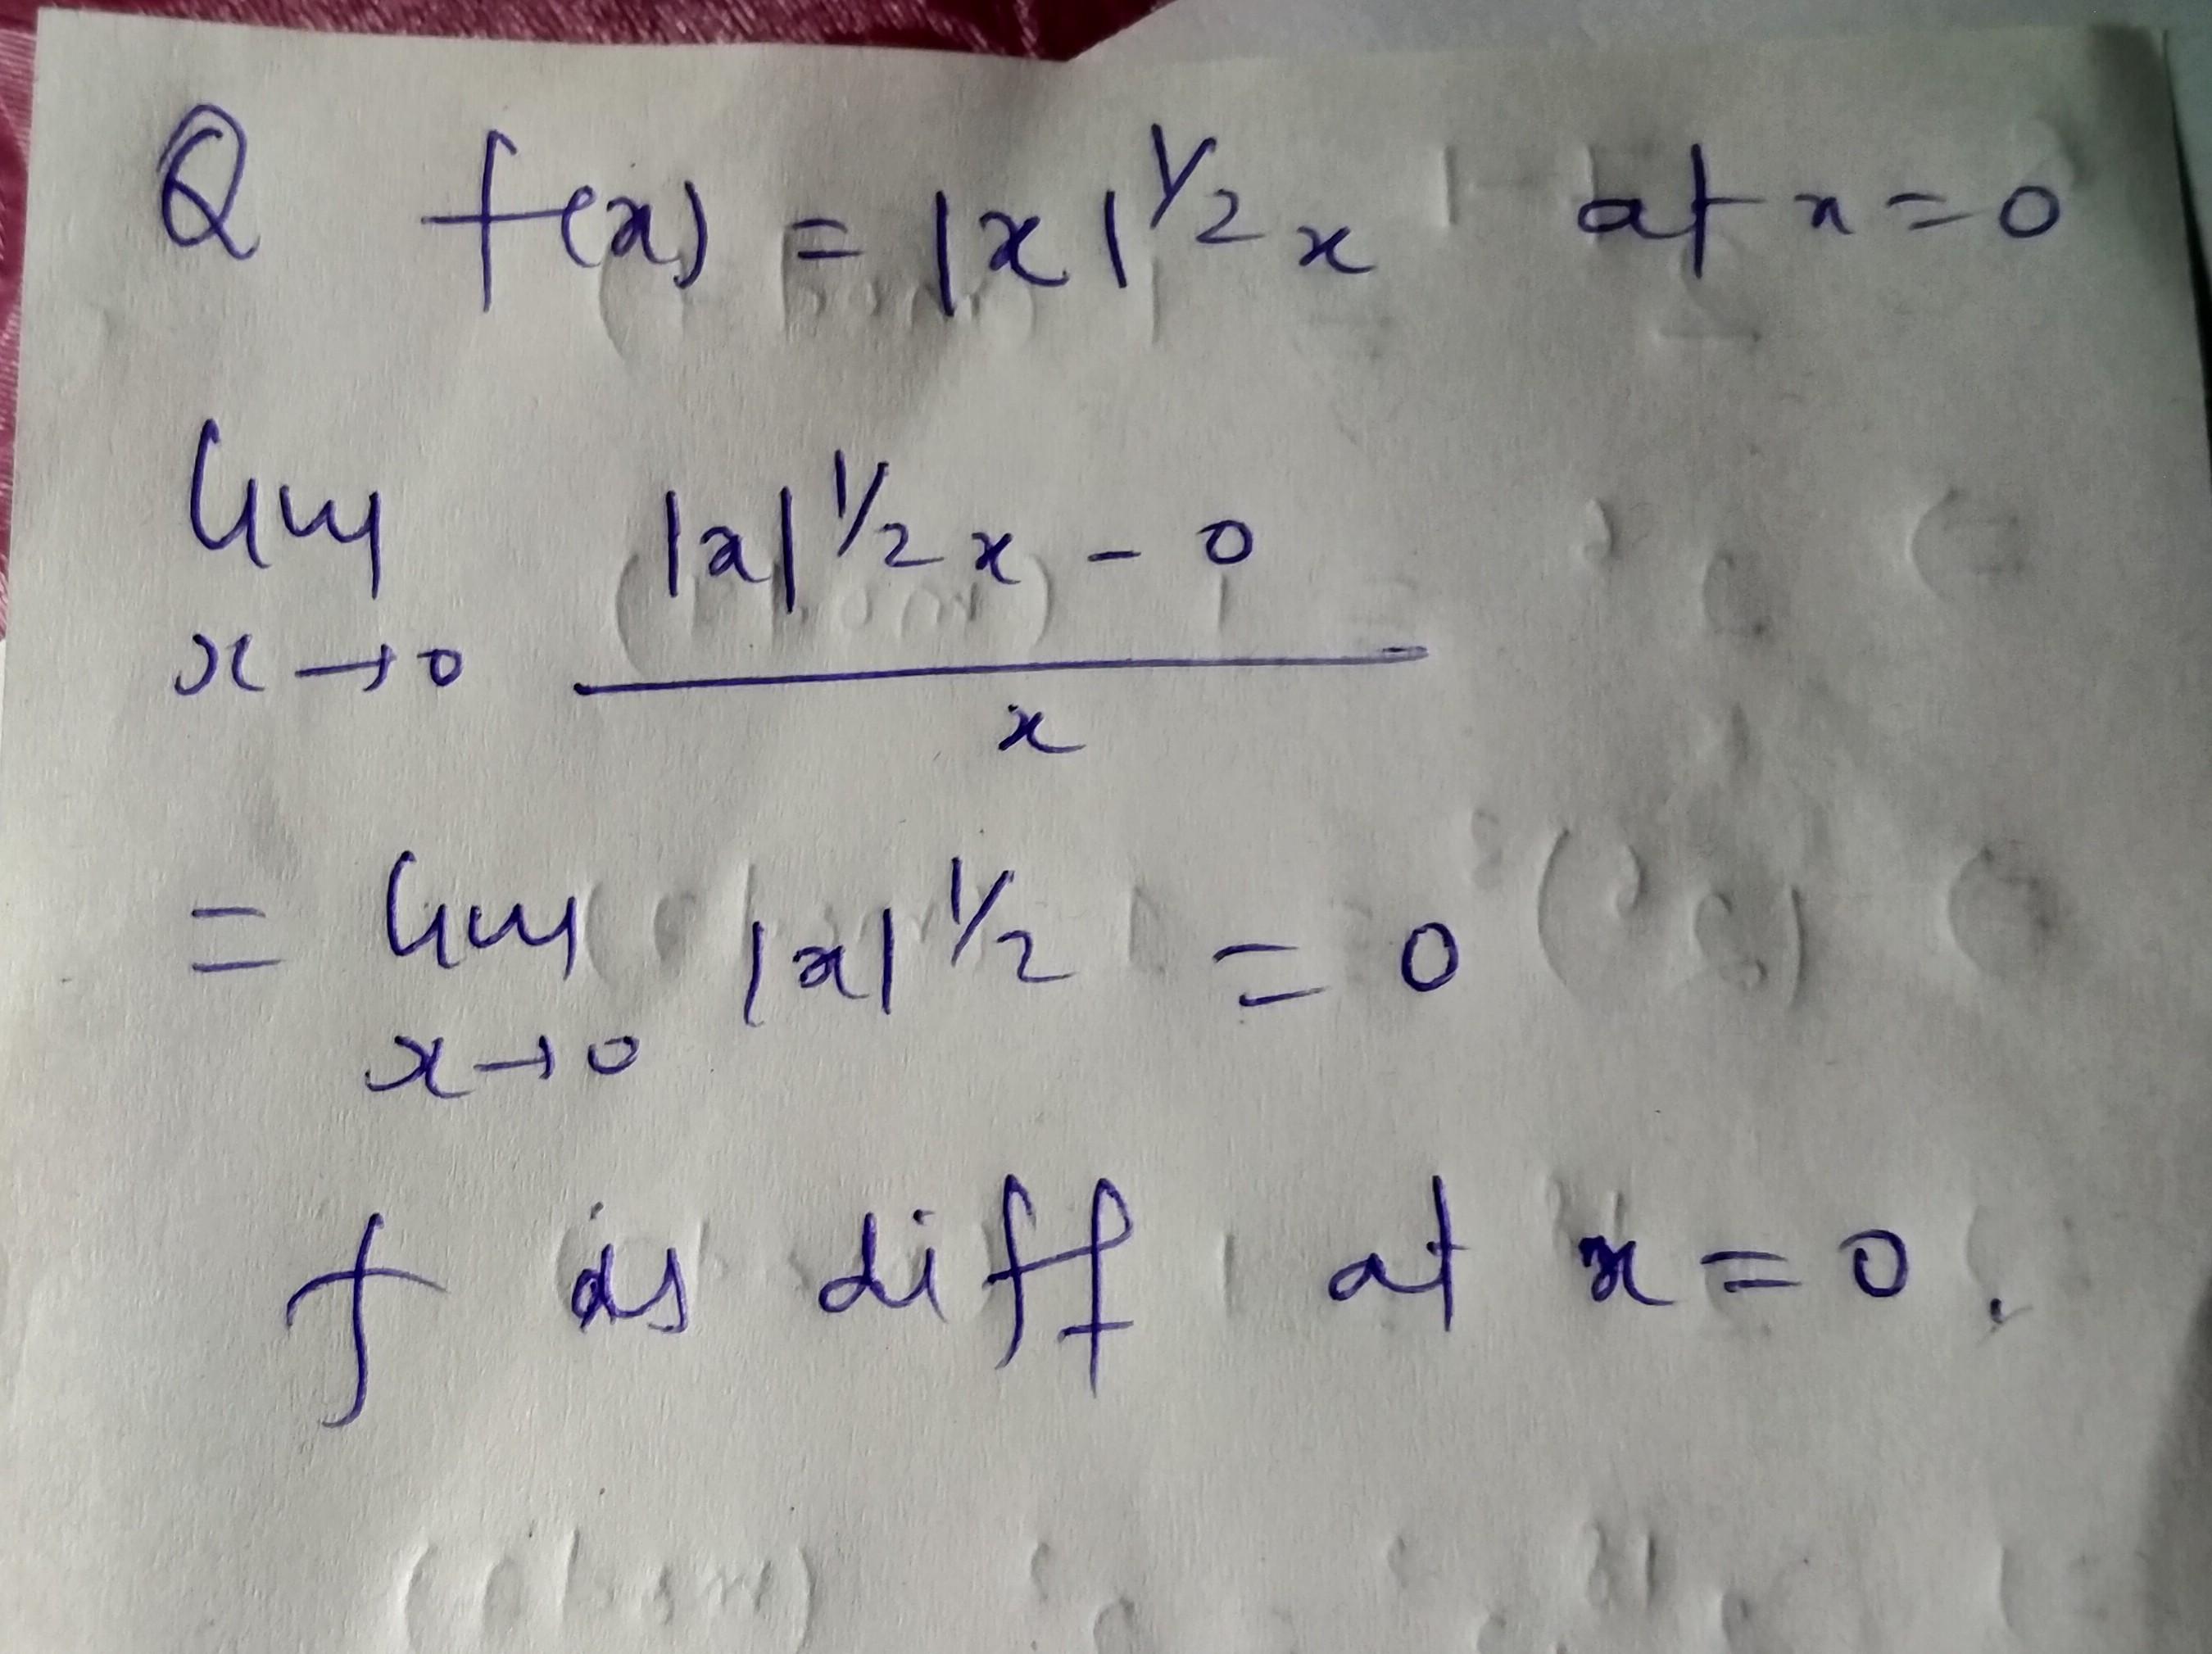 Q f(x) = |x|^1/2 x at x = 0
lim x→0 (|x|^1/2 x - 0) / x
= lim x→0 |x|^1/2 = 0
f is diff at x = 0.